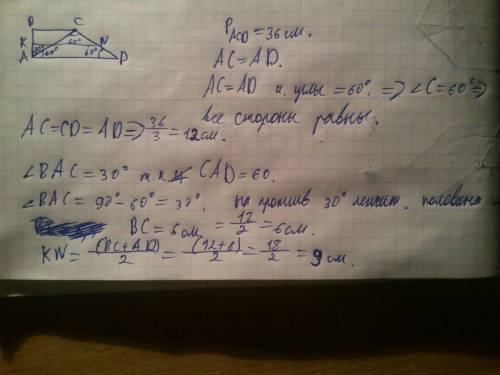 B C
K N
A 30° 60° 60° 60° D
P_ACD = 36 см.
AC = AD.
AC = AD и углы = 60° => ∠C = 60° =>
AC = CD = AD => 36/3 = 12 см. все стороны равны.
∠BAC = 30° т.к. ∠CAD = 60.
∠BAC = 90° - 60° = 30°. на против 30° лежит половина
BC = 6 см = 12/2 = 6 см.
KN = (BC + AD)/2 = (12 + 6)/2 = 18/2 = 9 см.